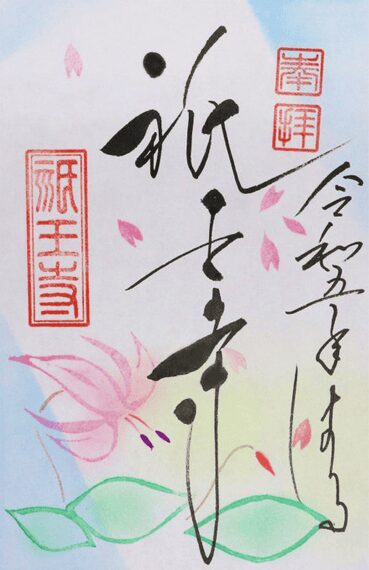 奉拝
令和五年はる
祇王寺
祇王寺